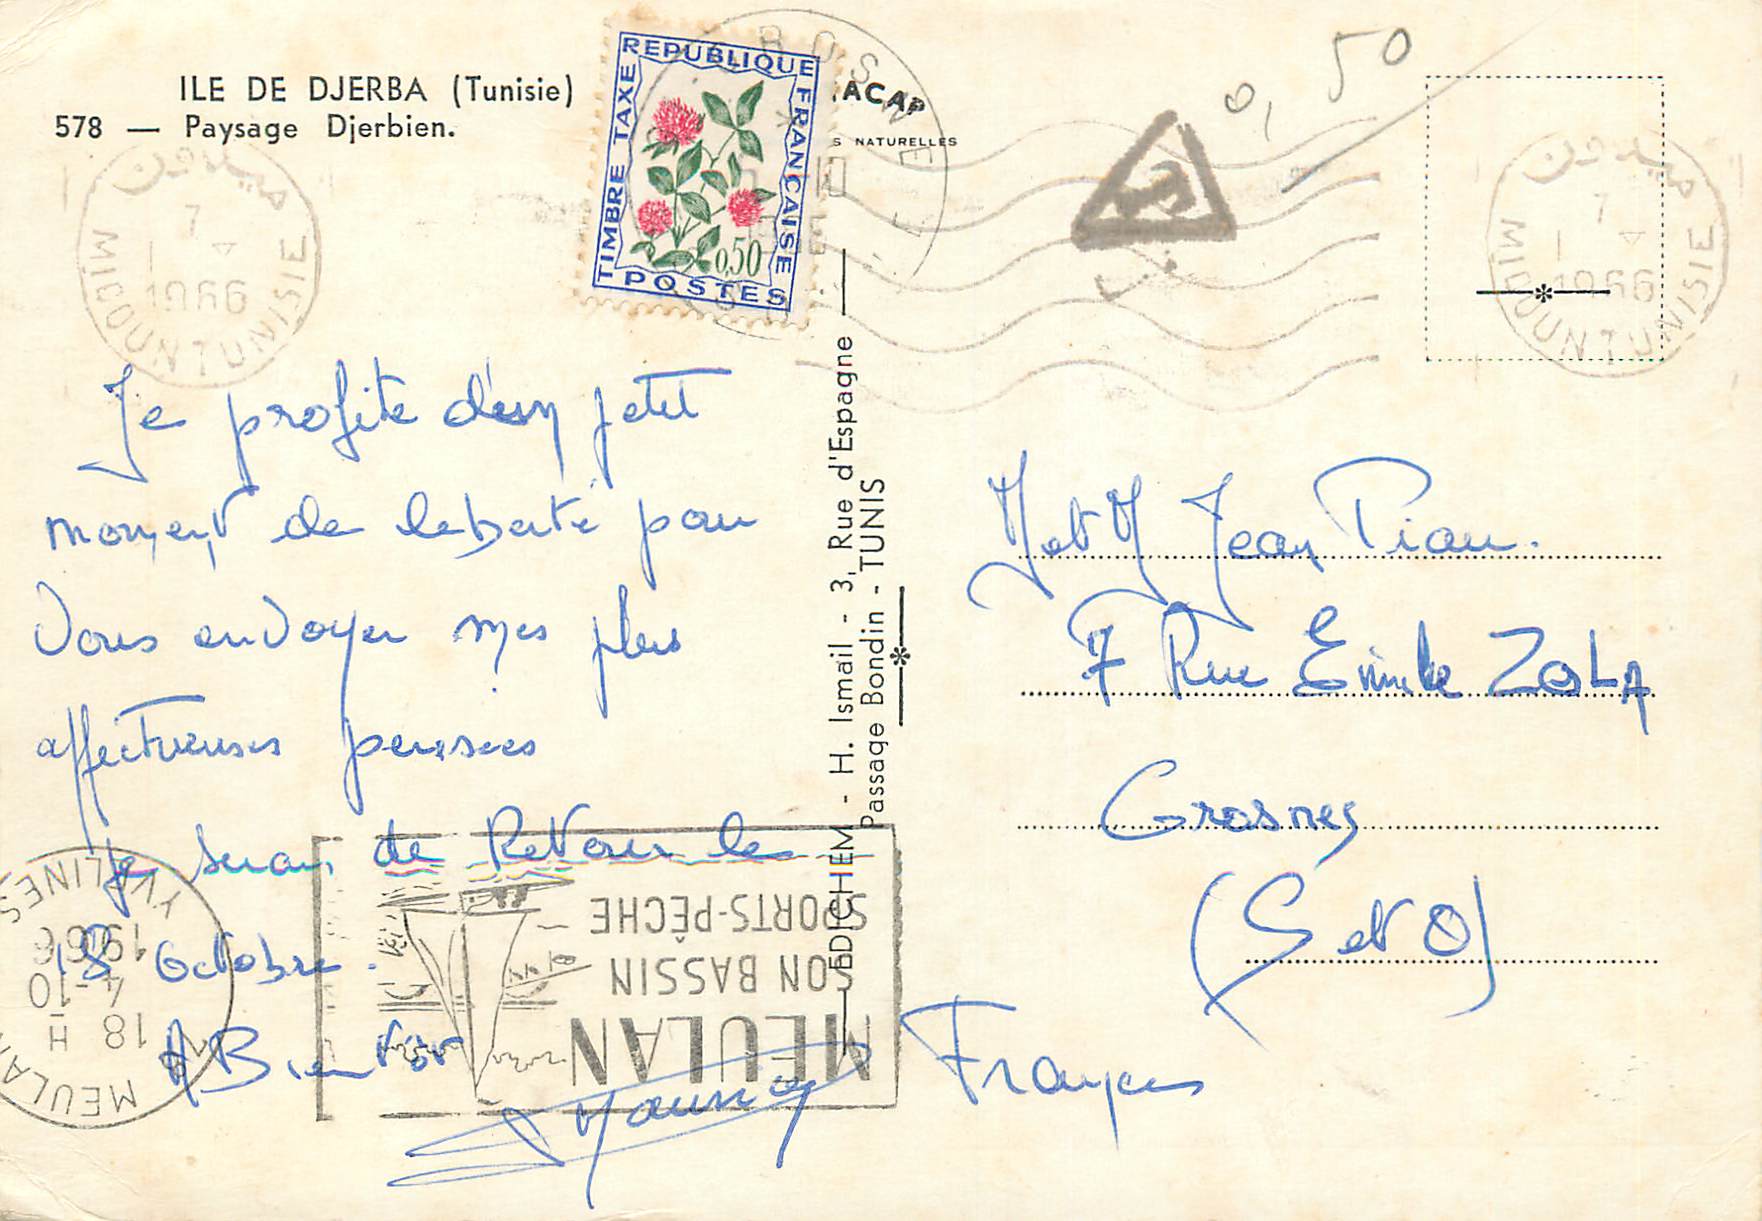 ILE DE DJERBA (Tunisie)
578 — Paysage Djerbien.
REPUBLIQUE FRANCAISE
TIMBRE TAXE
0,50
POSTES
ACAP
S NATURELLES
T
0,50
ميدون
7
1966
MIDOUN TUNISIE
ميدون
7
1966
MIDOUN TUNISIE
Je profite d'un petit
moment de liberté pour
Vous envoyer mes plus
affectueuses pensées
Je serai de Retour le
18 Octobre.
A Bientôt
EDICHEM - H. Ismail - 3, Rue d'Espagne
Passage Bondin - TUNIS
M et M Jean Pian.
7 Rue Emile ZOLA
Grosnes
(S et O)
France
MEULAN
SON BASSIN
SPORTS-PÊCHE
MEULAN
18 H
4-10
1966
YVELINES